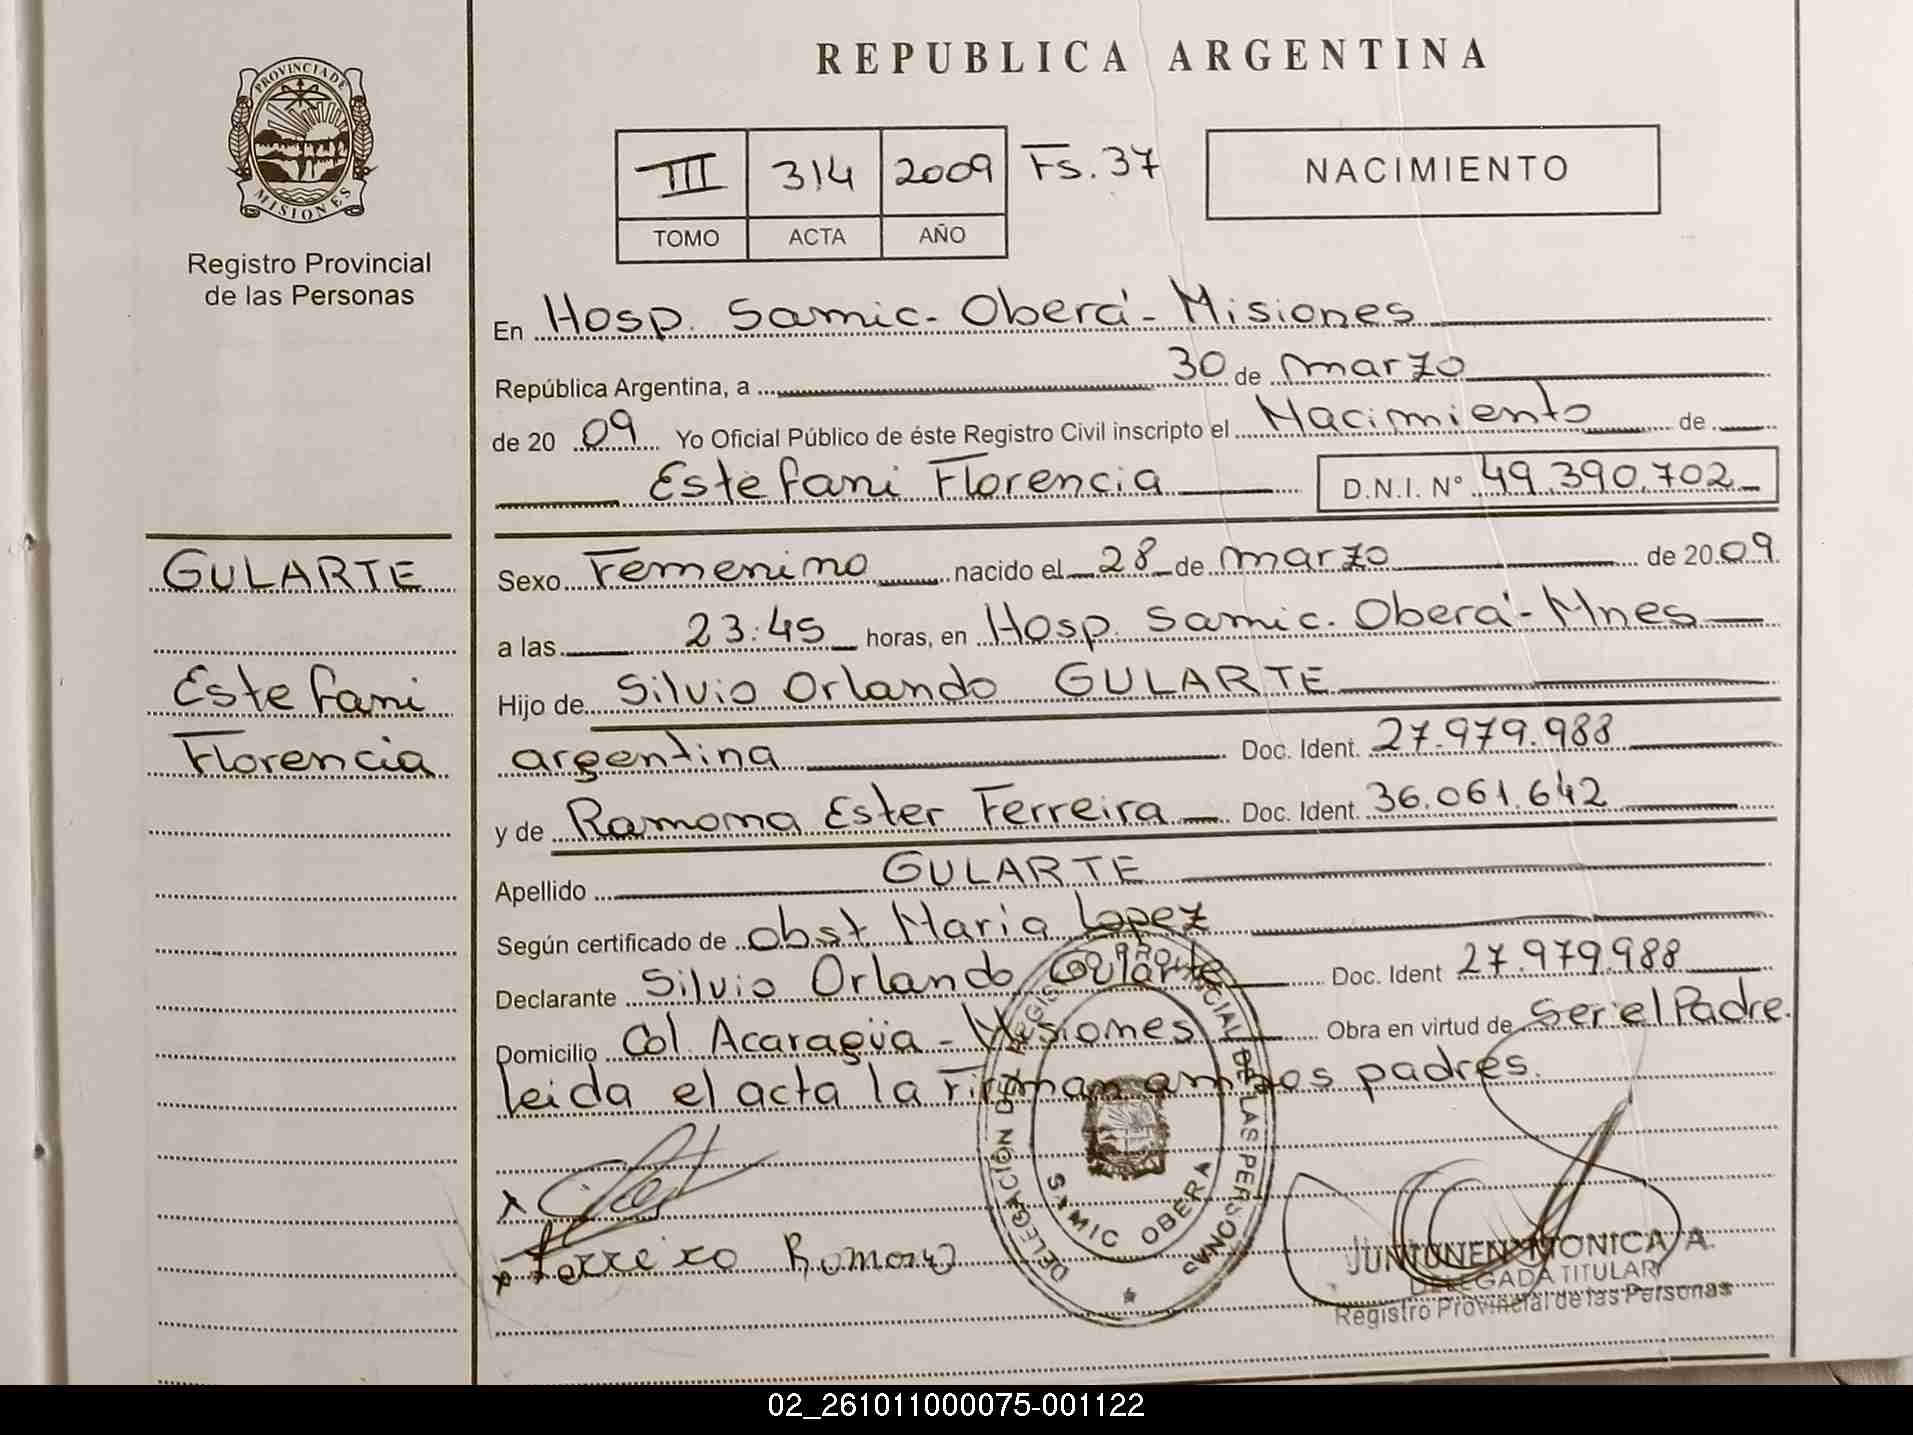 REPUBLICA ARGENTINA
PROVINCIA DE
MISIONES
Registro Provincial
de las Personas
III 314 2009 Fs. 37
TOMO ACTA AÑO
NACIMIENTO
En Hosp. Samic - Oberá - Misiones
República Argentina, a 30 de marzo
de 20 09 Yo Oficial Público de éste Registro Civil inscripto el Nacimiento de
Estefani Florencia D.N.I. N° 49.390.702
GULARTE
Estefani
Florencia
Sexo Femenino nacido el 28 de marzo de 20 09
a las 23:45 horas, en Hosp. Samic. Oberá - Mnes
Hijo de Silvio Orlando GULARTE
argentina Doc. Ident. 27.979.988
y de Ramona Ester Ferreira Doc. Ident. 36.061.642
Apellido GULARTE
Según certificado de obst. Maria Lopez
Declarante Silvio Orlando Gularte Doc. Ident 27.979.988
Domicilio Col. Acaragüa - Misiones Obra en virtud de Ser el Padre.
leida el acta la firman ambos padres.
x
x Ferreira Ramona
DELEGACIÓN DEL REGISTRO PROVINCIAL DE LAS PERSONAS
SAMIC OBERA
JUNTUNEN MONICA A.
DELEGADA TITULAR
Registro Provincial de las Personas
02_261011000075-001122